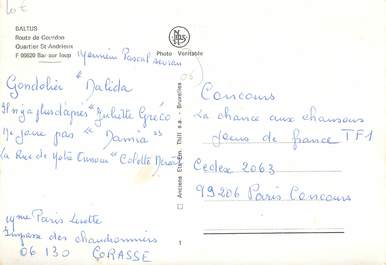 Lot
BALTUS
Route de Gourdon
Quartier St-Andrieux
F 06620 Bar sur loup
Photo Véritable
Monsieur Pascal sevran
Gondolier " Dalida
Il n'y a plus d'après " Juliette Gréco
Ne joue pas " Damia "
La Rue de Notre Amour " Colette
Concours
La chance aux chansons
Jeux de france TF1
Cedex 2063
99206 Paris Concours
Anciens Ets Em. Thill s.a. - Bruxelles
1
Mme Paris Lisette
Impasse des chaudronniers
06 130 GRASSE